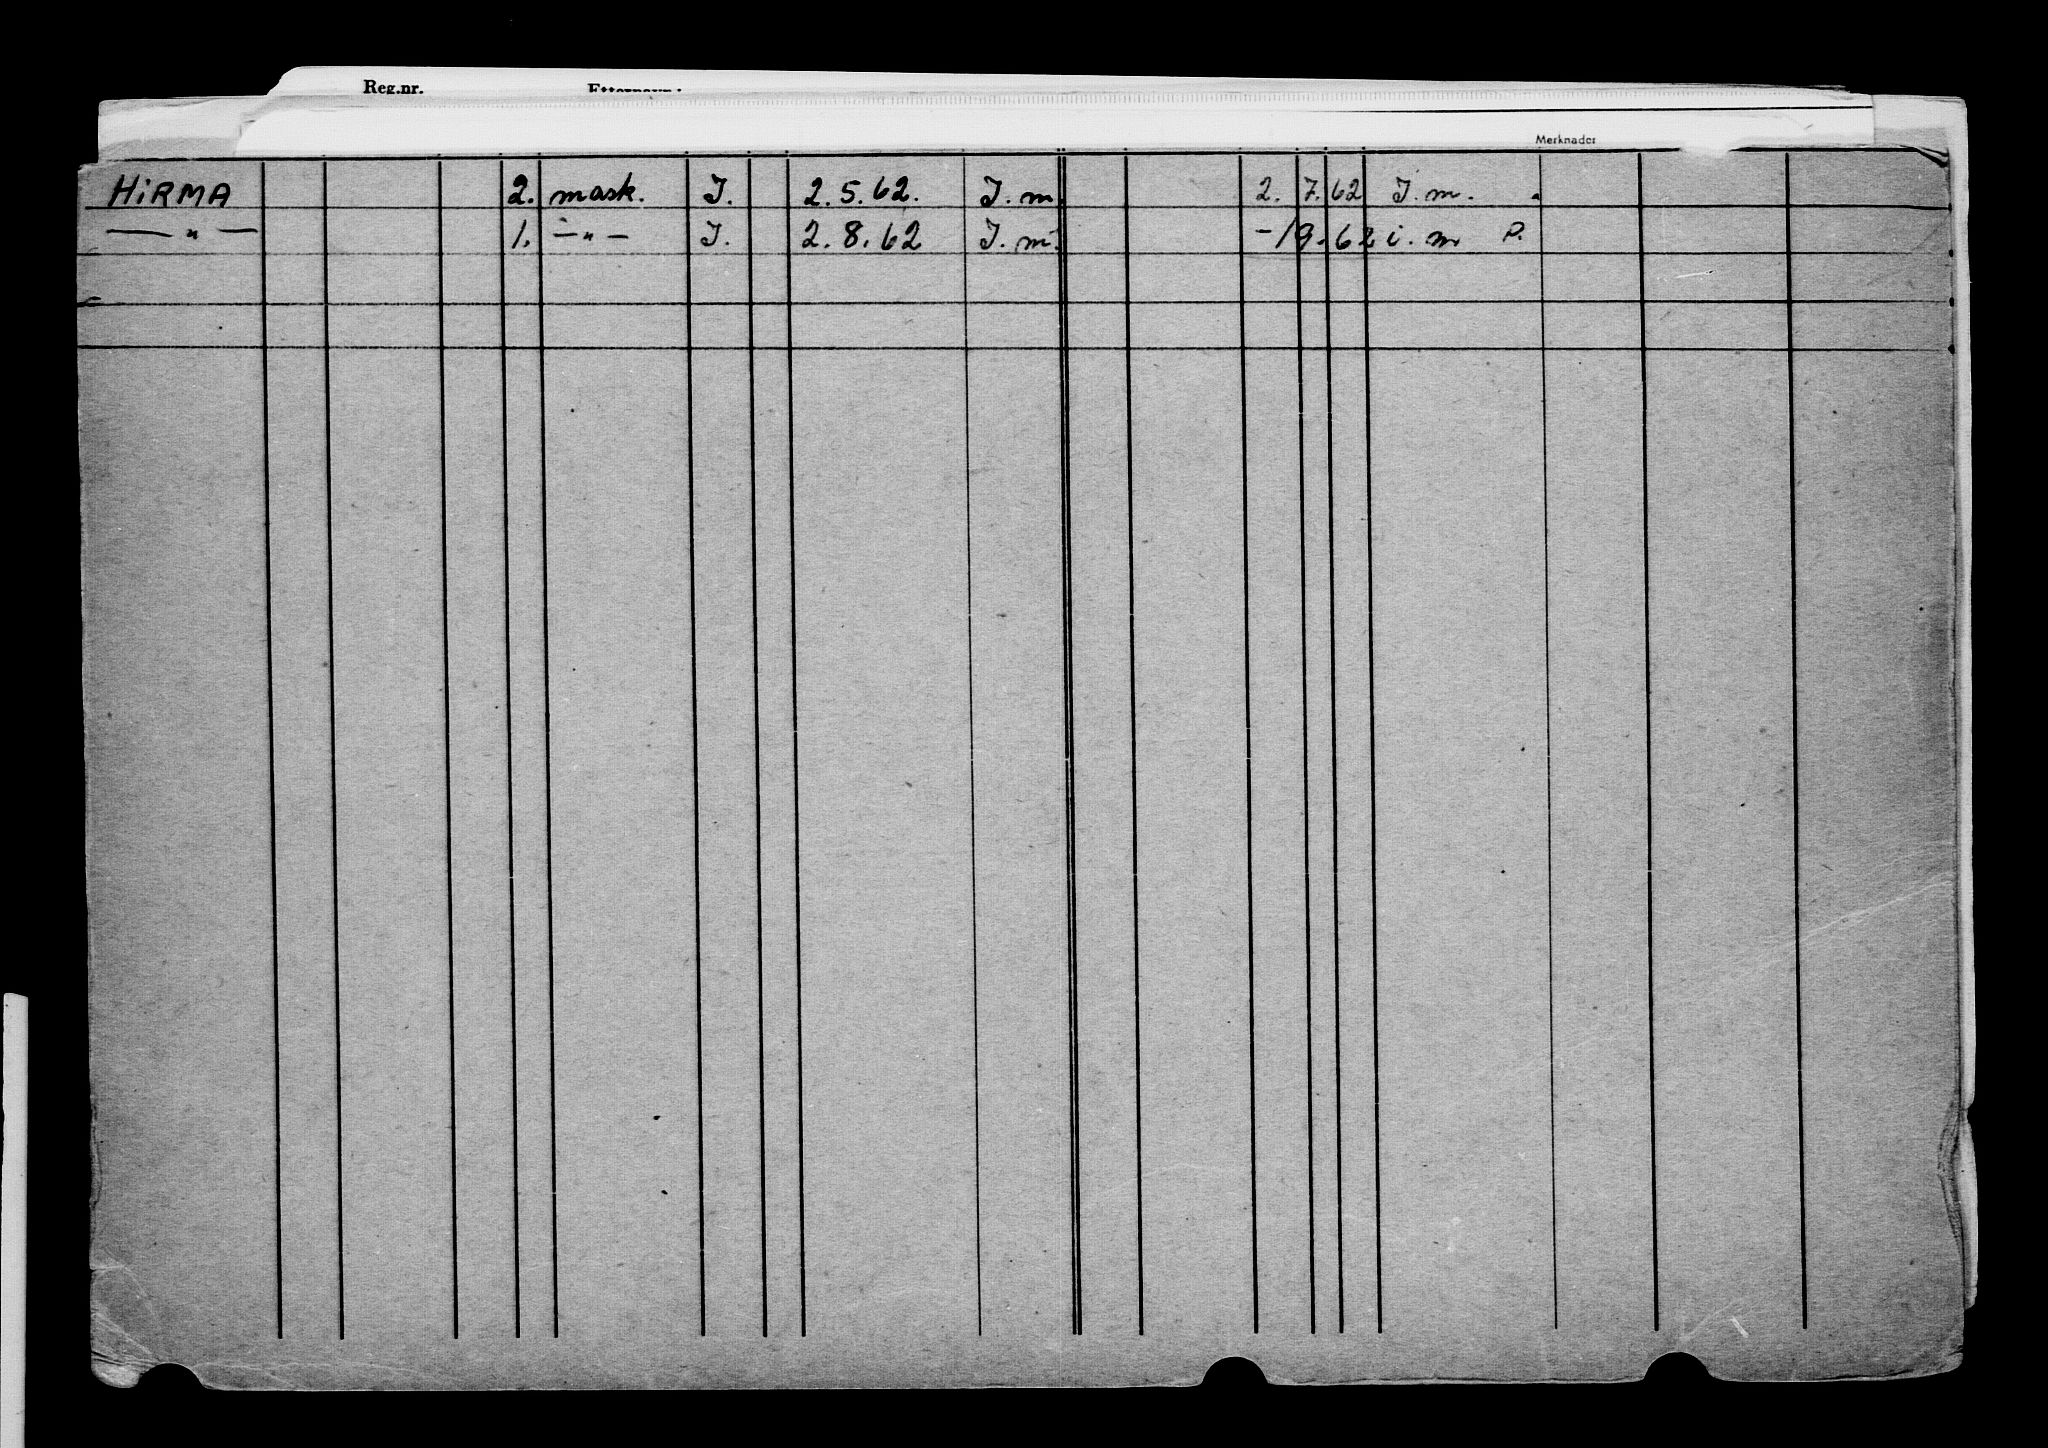 Reg.nr.
Merknader
HiRMA 2. mask. I. 2.5.62. I.m. 2. 7. 62 I.m.
— " — 1. — " — I. 2.8.62 I.m. -/9.62 i.m P.